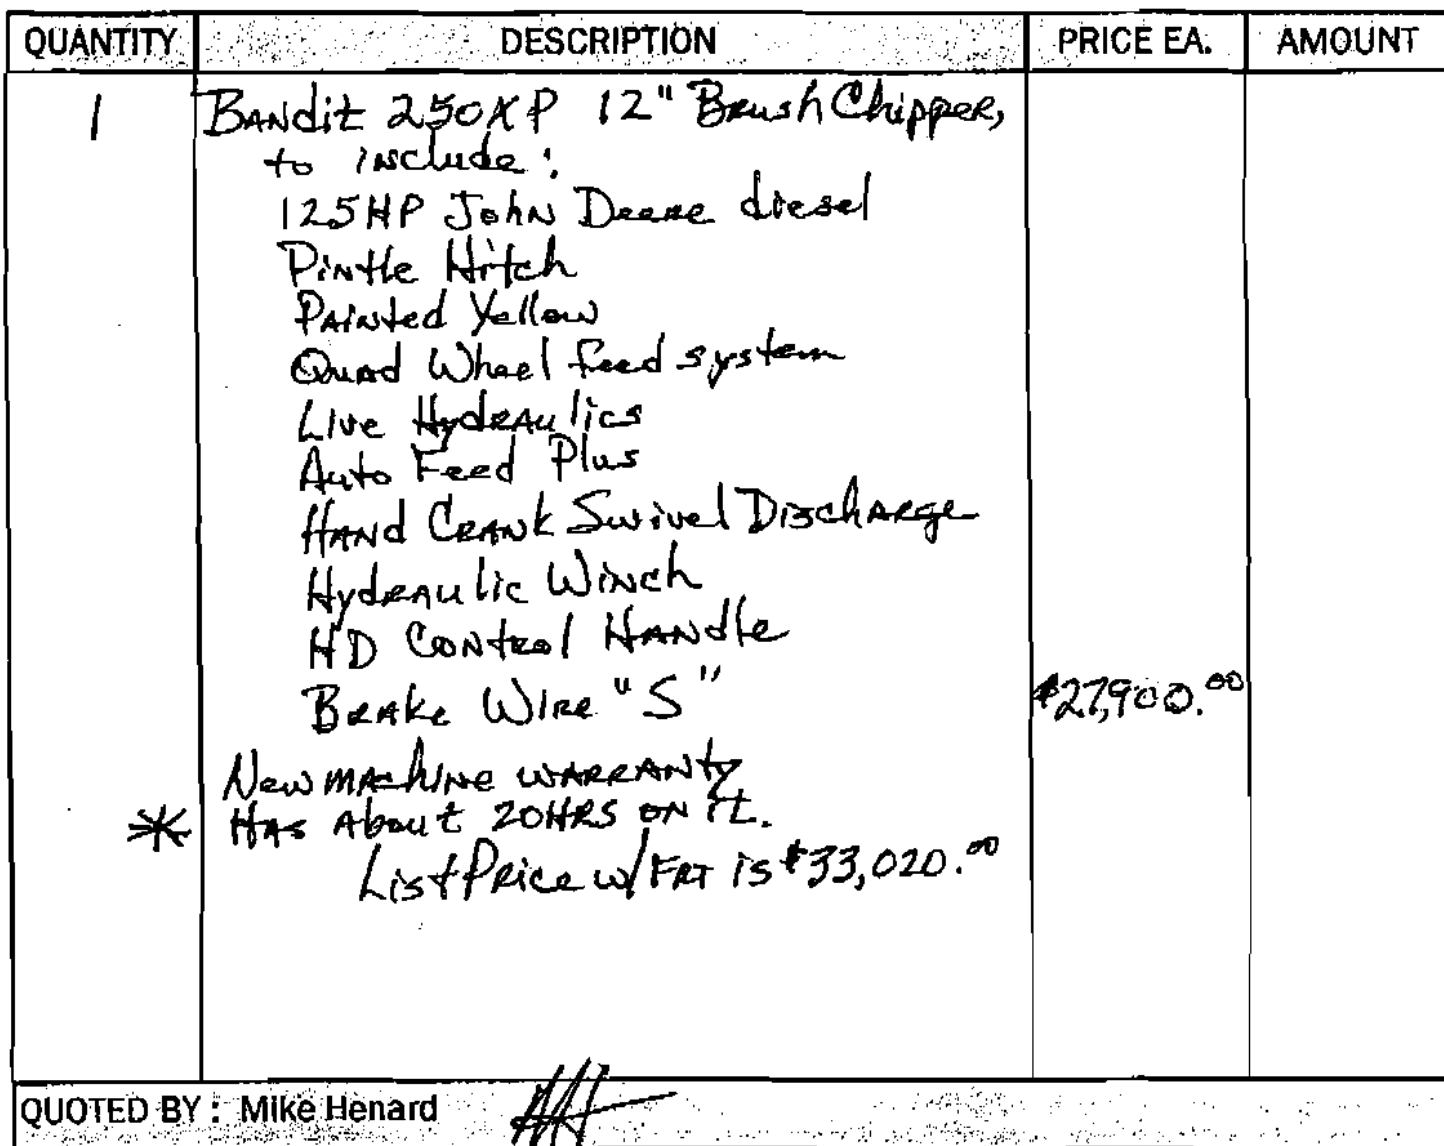 QUANTITY DESCRIPTION PRICE EA. AMOUNT
1 Bandit 250XP 12" Brush Chipper,
to include:
125HP John Deere diesel
Pintle Hitch
Painted Yellow
Quad Wheel feed system
Live Hydraulics
Auto Feed Plus
Hand Crank Swivel Discharge
Hydraulic Winch
HD Control Handle
Brake Wire "S" $27,900.00
New machine warranty
* Has About 20HRS on it.
List Price w/ FRT is $33,020.00
QUOTED BY : Mike Henard